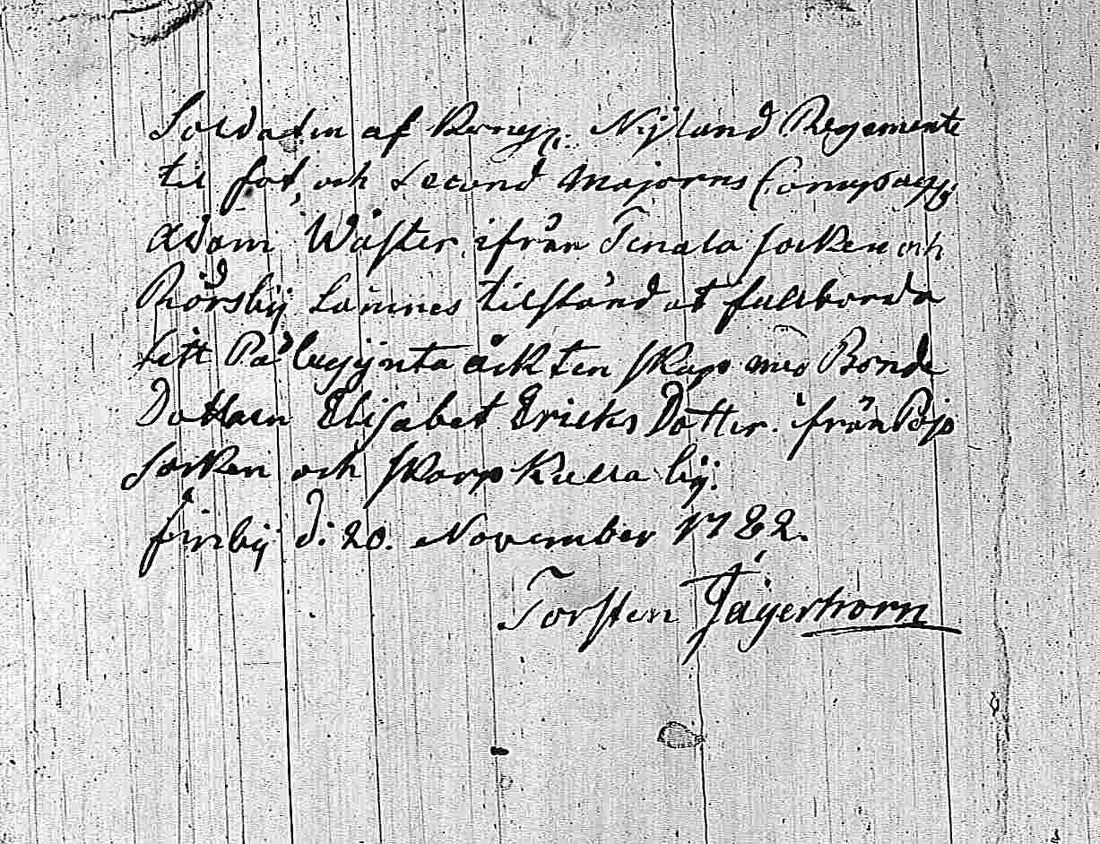 Soldaten af Kongl. Nÿland Regemente
til fot, och Second Majorns Compagn:
Adam Wåster ifrån Tenala socken och
Rörsbÿ Lämnes tilstånd at fullborda
sitt Påbegÿnta äcktenskap med Bonde
Dottren Elisabet Ericks Dotter ifrån Pojo
socken och Skarpkulla bÿ.
finbÿ d: 20. November 1782.
Torsten Jägerhorn